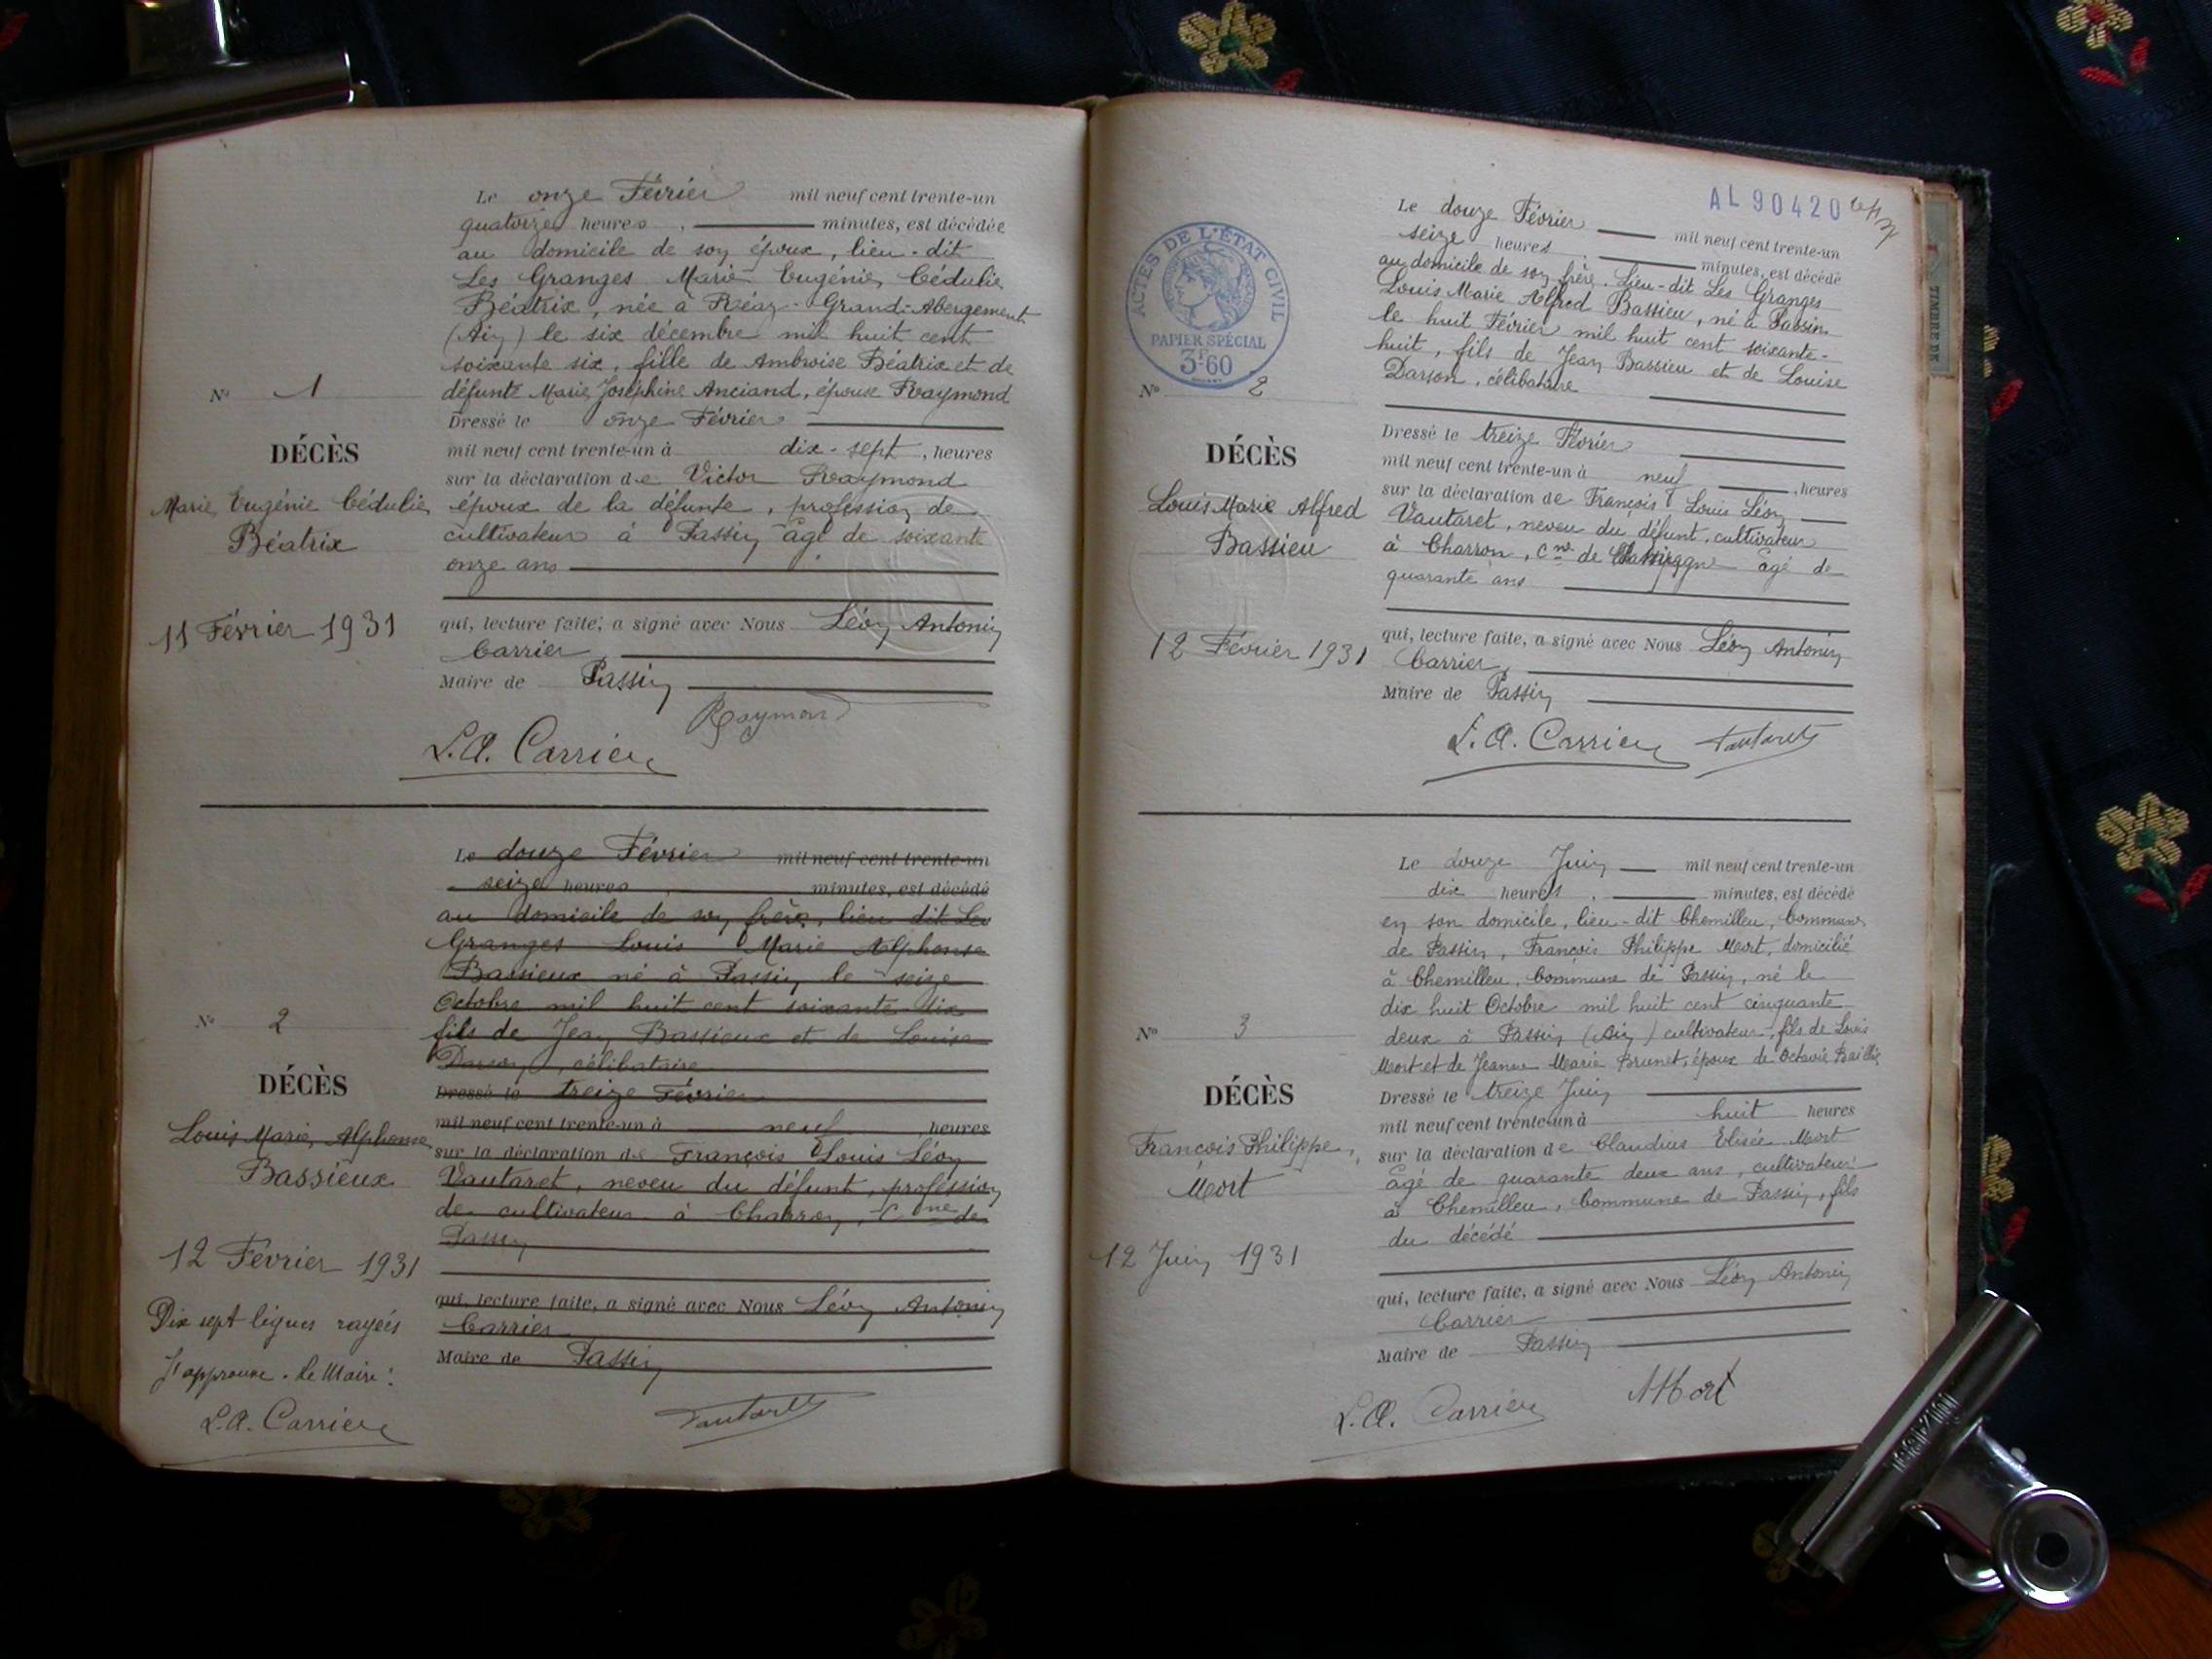 Le onze Février mil neuf cent trente-un
quatorze heures, minutes, est décédée
au domicile de son époux, lieu-dit
Les Granges, Marie Eugénie Cédulie
Béatrix, née à Grand-Abergement
(Ain) le six décembre mil huit cent
soixante six, fille de Ambroise Béatrix et de
défunte Marie Joséphine Anciand, épouse Raymond
Dressé le onze Février
mil neuf cent trente-un à dix-sept, heures
sur la déclaration de Victor Raymond
époux de la défunte, profession de
cultivateur à Passin âgé de soixante
onze ans
qui, lecture faite, a signé avec Nous Léon Antonin
Carrier
Maire de Passin
Raymond
L.A. Carrier
N° 1
DÉCÈS
Marie Eugénie Cédulie
Béatrix
11 Février 1931
Le douze Février mil neuf cent trente-un
seize heures, minutes, est décédé
au domicile de son frère, lieu dit Les
Granges Louis Marie Alphonse
Bassieux né à Passin le seize
Octobre mil huit cent soixante dix
fils de Jean Bassieux et de Louise
Darson, célibataire
Dressé le treize Février
mil neuf cent trente-un à neuf, heures
sur la déclaration de François Louis Léon
Vautaret, neveu du défunt, profession
de cultivateur à Charron, Cne de
Passin
qui, lecture faite, a signé avec Nous Léon Antonin
Carrier
Maire de Passin
Vautaret
N° 2
DÉCÈS
Louis Marie Alphonse
Bassieux
12 Février 1931
Dix sept lignes rayées
J'approuve. le Maire:
L.A. Carrier
AL 90420
ACTES DE L'ÉTAT CIVIL
PAPIER SPÉCIAL
3F60
Le douze Février mil neuf cent trente-un
seize heures, minutes, est décédé
au domicile de son frère. Lieu-dit Les Granges
Louis Marie Alfred Bassieu, né à Passin
le huit Février mil huit cent soixante-
huit, fils de Jean Bassieu et de Louise
Darson, célibataire
Dressé le treize Février
mil neuf cent trente-un à neuf, heures
sur la déclaration de François Louis Léon
Vautaret, neveu du défunt, cultivateur
à Charron, Cne de âgé de
quarante ans
qui, lecture faite, a signé avec Nous Léon Antonin
Carrier
Maire de Passin
L.A. Carrier Vautaret
N° 2
DÉCÈS
Louis Marie Alfred
Bassieu
12 Février 1931
Le douze Juin mil neuf cent trente-un
dix heures, minutes, est décédé
en son domicile, lieu-dit Chemilleu, Commune
de Passin, François Philippe Mort, domicilié
à Chemilleu, Commune de Passin, né le
dix huit Octobre mil huit cent cinquante
deux à Passin (Ain) cultivateur, fils de Louis
Mort et de Jeanne Marie Brunet, époux de Octavie
Dressé le treize Juin
mil neuf cent trente-un à huit heures
sur la déclaration de Claudius Elisée Mort
âgé de quarante deux ans, cultivateur
à Chemilleu, Commune de Passin, fils
du décédé
qui, lecture faite, a signé avec Nous Léon Antonin
Carrier
Maire de Passin
L.A. Carrier Mort
N° 3
DÉCÈS
François Philippe
Mort
12 Juin 1931